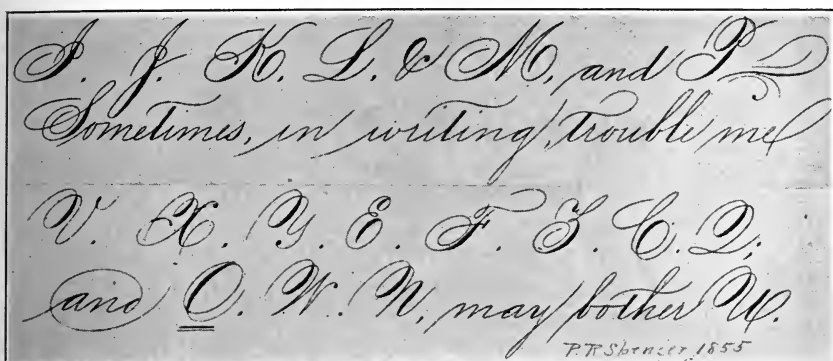 I. J. K. L. & M. and P
Sometimes, in writing, trouble me
V. X. Y. E. F. G. C. Q;
and O. W. N, may bother U.
P. R. Spencer 1855